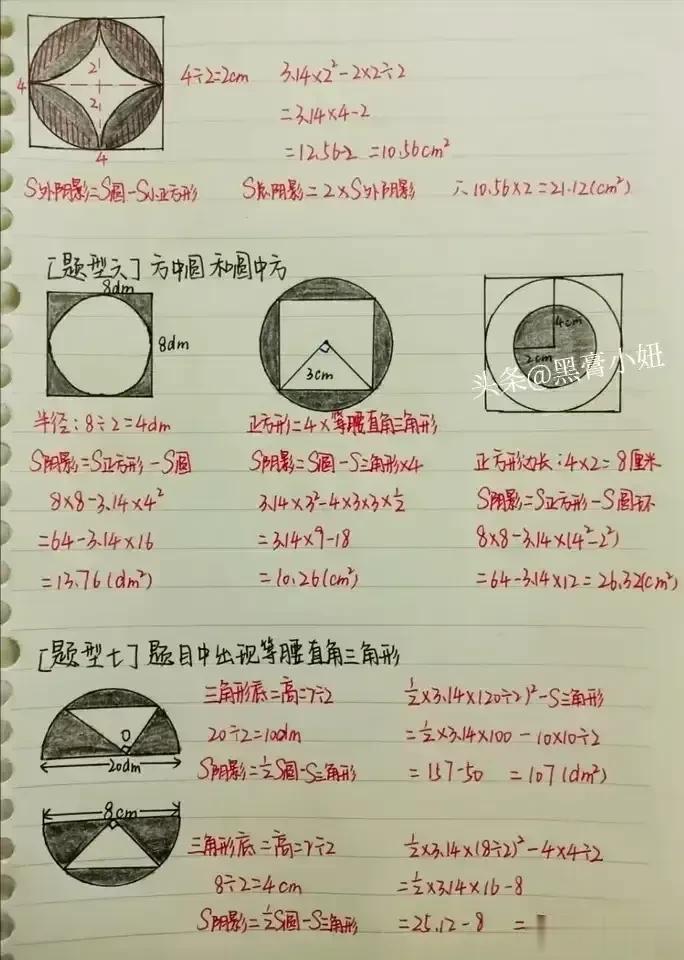 4
2
2
4
4÷2=2cm
3.14×2²-2×2÷2
=3.14×4-2
=12.56-2 =10.56cm²
S外阴影=S圆-S小正方形
S总阴影=2×S外阴影
∴10.56×2=21.12(cm²)
[题型六]方中圆和圆中方
8dm
8dm
3cm
4cm
2cm
头条@黑膏小妞
半径:8÷2=4dm
S阴影=S正方形-S圆
8×8-3.14×4²
=64-3.14×16
=13.76(dm²)
正方形=4×等腰直角三角形
S阴影=S圆-S三角形×4
3.14×3²-4×3×3×½
=3.14×9-18
=10.26(cm²)
正方形边长:4×2=8厘米
S阴影=S正方形-S圆环
8×8-3.14×(4²-2²)
=64-3.14×12=26.32(cm²)
[题型七]题目中出现等腰直角三角形
O
20dm
三角形底=高=r÷2
20÷2=10dm
S阴影=½S圆-S三角形
½×3.14×(20÷2)²-S三角形
=½×3.14×100-10×10÷2
=157-50 =107(dm²)
8cm
三角形底=高=r÷2
8÷2=4cm
S阴影=½S圆-S三角形
½×3.14×(8÷2)²-4×4÷2
=½×3.14×16-8
=25.12-8 =